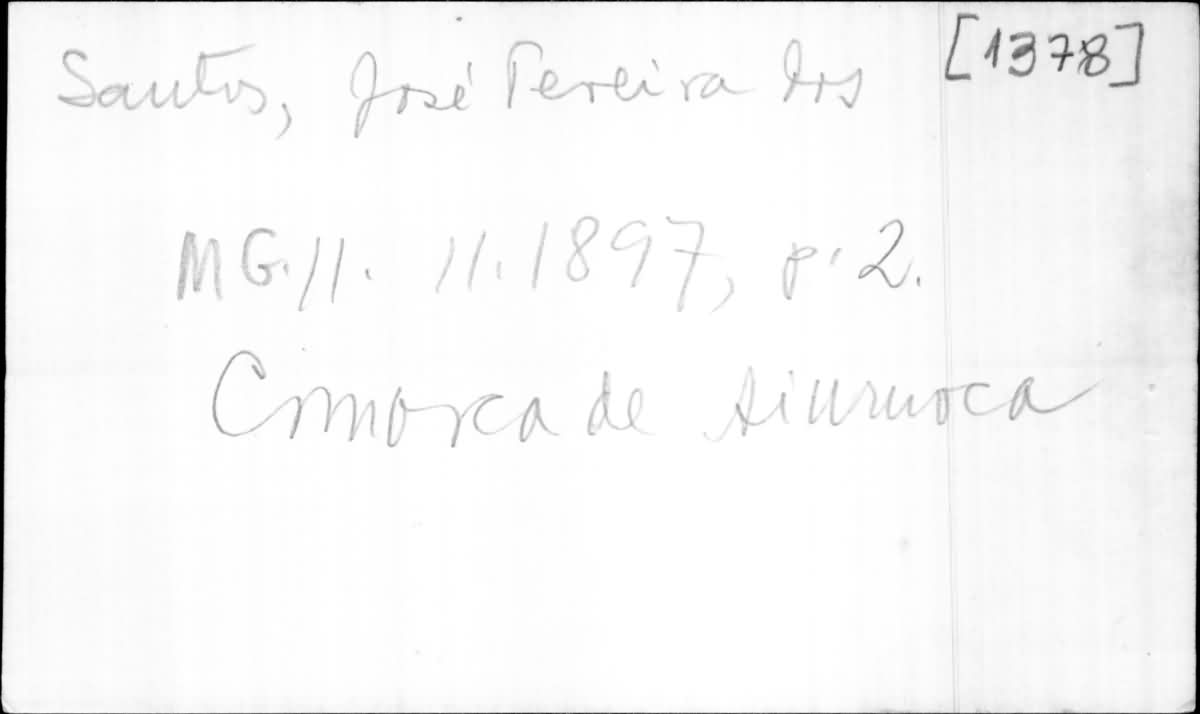 Santos, José Pereira dos [1378]
MG. 11. 11. 1897, p. 2.
Comarca de Aiuruoca